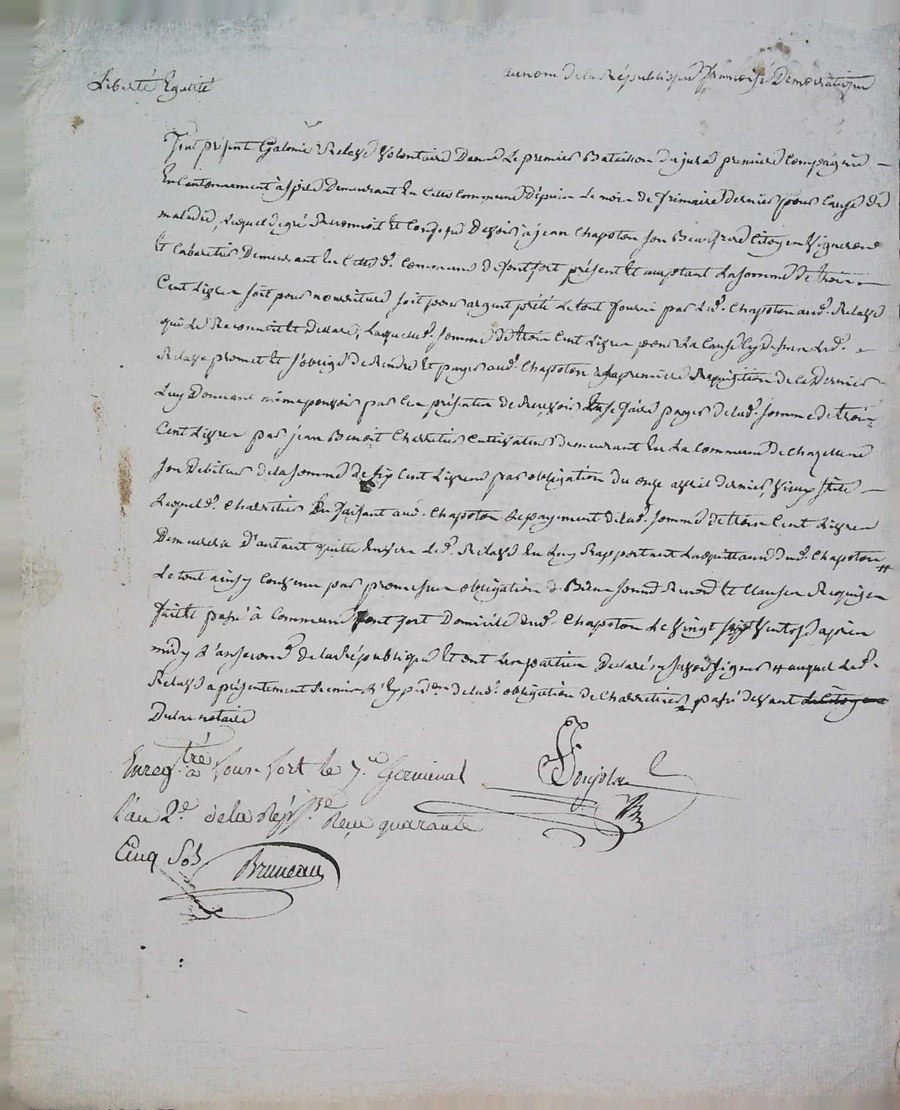 Liberté Egalité
au nom de la République françoise Democratique
fut présent Relave Volontaire Dans Le premier Bataillon du jura premiere Compagnie —
En Cantonnement à Demeurant En Cette Commune Depuis Le mois de frimaire Dernier pour Cause de
maladie, Lequel de gré Reconnoit Et Confesse Devoir à jean Chapoton son Beaufrere Citoyen Vigneron
Et Cabaretier Demeurant En Cette de. Commune de pontfort présent Et acceptant La somme de trois
Cent Livres soit pour nourriture soit pour argent prêté Le tout fourni par Led. Chapoton aud. Relave
qui Le Reconnoit Et declare, Laquelle d. somme de trois Cent Livres pour La Cause Cy dessus Led. —
Relave promet Et s'oblige de Rendre Et payer aud. Chapoton a sa premiere Requisition de Ce Dernier
Luy Donnant même pouvoir par Les présentes de Recevoir Et se faire payer de lad. somme de trois
Cent Livres par jean Benoit Charretier Cultivateur demeurant En La Commune de Chazellune
son Debiteur de la somme de six Cent Livres par obligation du onze avril dernier, Vieux stile —
Lequel d. Charretier En faisant aud. Chapoton Le payement de lad. somme de trois Cent Livres
Demeurera D'autant quitte Envers Led. Relave En Luy Rapportant La quittance dud. Chapoton #
Le tout ainsy Convenu par promesses obligation de Biens soumis Renon. Et Clauses Requises
faitte passé à Commune pont fort Domicile dud. Chapoton Le Vingt sept Ventose après
midy L'an second de la République Et ont Les parties Declaré Savoir Signer # auquel Led.
Relave a présentement Remis L'Expéd.on de lad. obligation de Charretier passé devant
notaire
Enreg.tré à Sous-Fort le 7.e Germinal
l'an 2.e de la Rép. Reçu quarante
Cinq Sols Bruneau